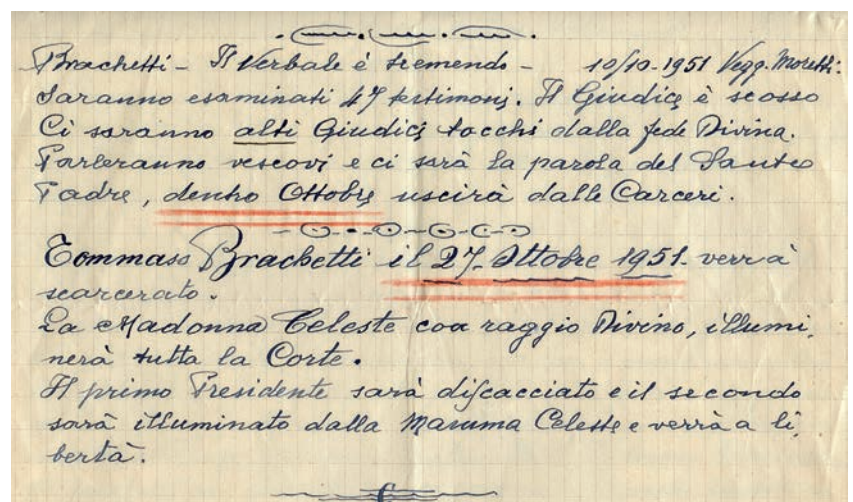 Brachetti - Il Verbale è tremendo - 10/10-1951 Vegg. Moretti:
Saranno esaminati 47 testimoni. Il Giudice è scosso
Ci saranno alti Giudici tocchi dalla fede Divina.
Parleranno vescovi e ci sarà la parola del Santo
Padre, dentro Ottobre uscirà dalle Carceri.
Tommaso Brachetti il 27- Ottobre 1951- verrà
scarcerato.
La Madonna Celeste con raggio Divino, illumi,
nerà tutta la Corte.
Il primo Presidente sarà discacciato e il secondo
sarà illuminato dalla Mamma Celeste e verrà a li,
bertà.